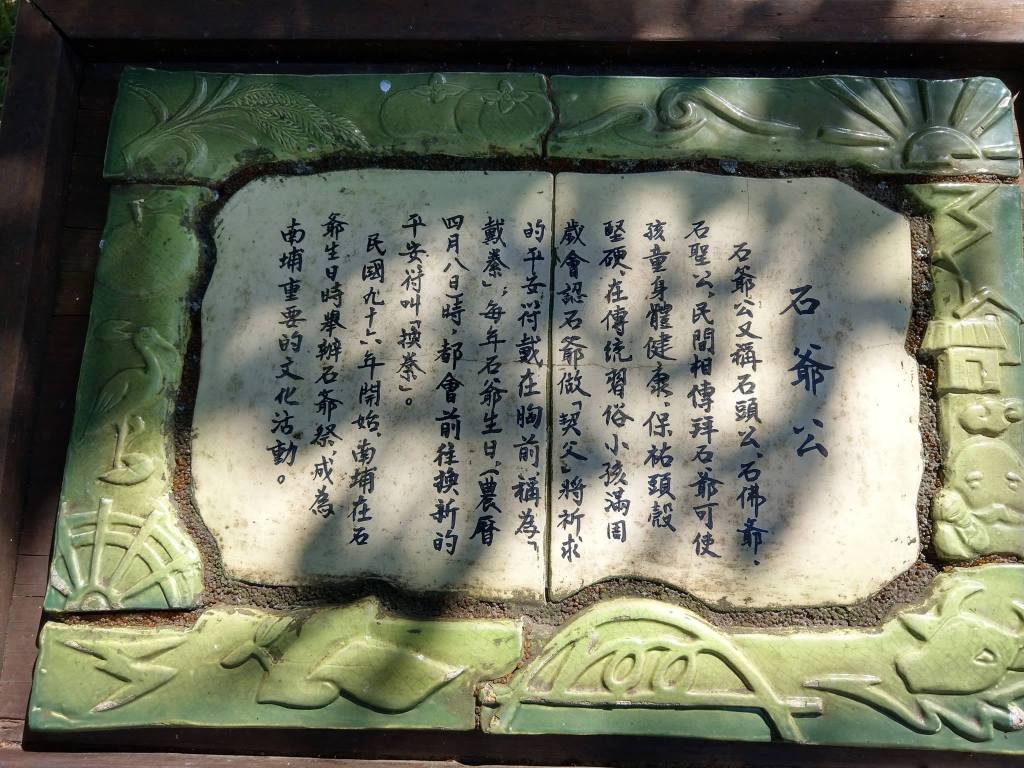 石爺公
石爺公又稱石頭公、石佛爺、
石聖公、民間相傳拜石爺可使
孩童身體健康、保祐頭殼
堅硬、在傳統習俗小孩滿周
歲會認石爺做「契父」將祈求
的平安符戴在胸前稱為「
戴絭」，每年石爺生日、(農曆
四月八日)時、都會前往換新的
平安符叫「換絭」。
民國九十六年開始、南埔在石
爺生日時舉辦石爺祭、成為
南埔重要的文化活動。